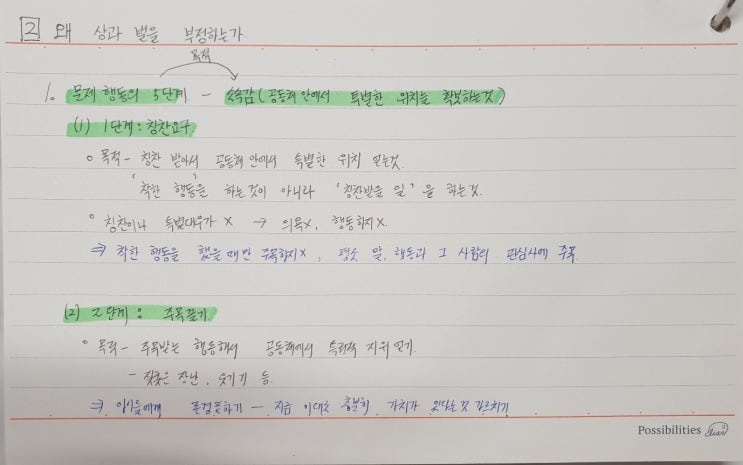 2 왜 상과 벌을 부정하는가
목적
1. 문제 행동의 5단계 - 소속감 (공동체 안에서 특별한 위치를 확보하는것)
(1) 1단계 : 칭찬요구
○ 목적 - 칭찬 받아서 공동체 안에서 특별한 위치 얻는것.
'착한 행동'을 하는것이 아니라 '칭찬받을 일'을 하는것.
○ 칭찬이나 특별대우가 X → 의욕X, 행동하지X.
⇒ 착한 행동을 했을때만 주목하지X, 평소 말, 행동과 그 사람의 관심사에 주목.
(2) 2단계 : 주목끌기
○ 목적 - 주목받는 행동해서 공동체에서 특권적 지위 얻기.
- 짖궂은 장난, 웃기기 등.
⇒ 존경표하기 - 지금 이대로 충분히 가치가 있다는것 가르치기
Possibilities